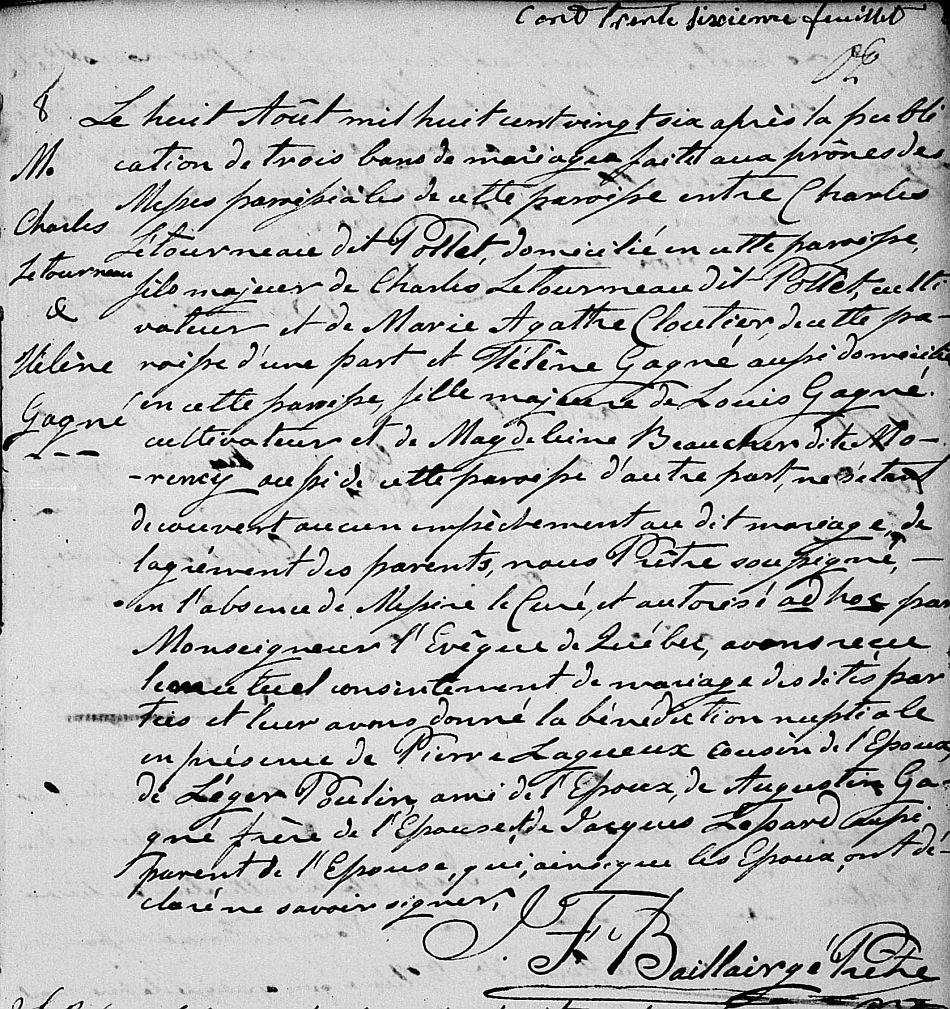 Cent trente sixième feuillet
8
M.
Charles
Letourneau
&
Hélène
Gagné
Le huit Août mil huit cent vingt six après la publi
cation de trois bans de mariage faite aux prônes des
Messes paroissiales de cette paroisse entre Charles
Létourneau dit Pottet, domicilié en cette paroisse,
fils majeur de Charles Letourneau dit Pottet, culti
vateur et de Marie Agathe Cloutier, de cette pa-
roisse d'une part et Hélène Gagné aussi domiciliée
en cette paroisse, fille majeure de Louis Gagné.
cultivateur et de Magdeleine Beaucher dite Mo-
-rency aussi de cette paroisse d'autre part, ne s'étant
decouvert aucun empêchement au dit mariage, de
lagrément des parents, nous Prêtre soussigné, -
en l'absence de Messire le Curé, et autorisé ad hoc par
Monseigneur l'Evêque de Québec, avons reçu
le mutuel consentement de mariage des dites par
ties et leur avons donné la bénédiction nuptiale
en présence de Pierre Lagueux cousin de l'Epoux,
de Léger Poulin ami de l'Epoux, de Augustin Ga-
gné frère de l'Epouse et de Jacques Lessard aussi
parent de l'Epouse, qui, ainsi que les Epoux, ont dé-
claré ne savoir signer.
J. Fs Baillairgé Ptre